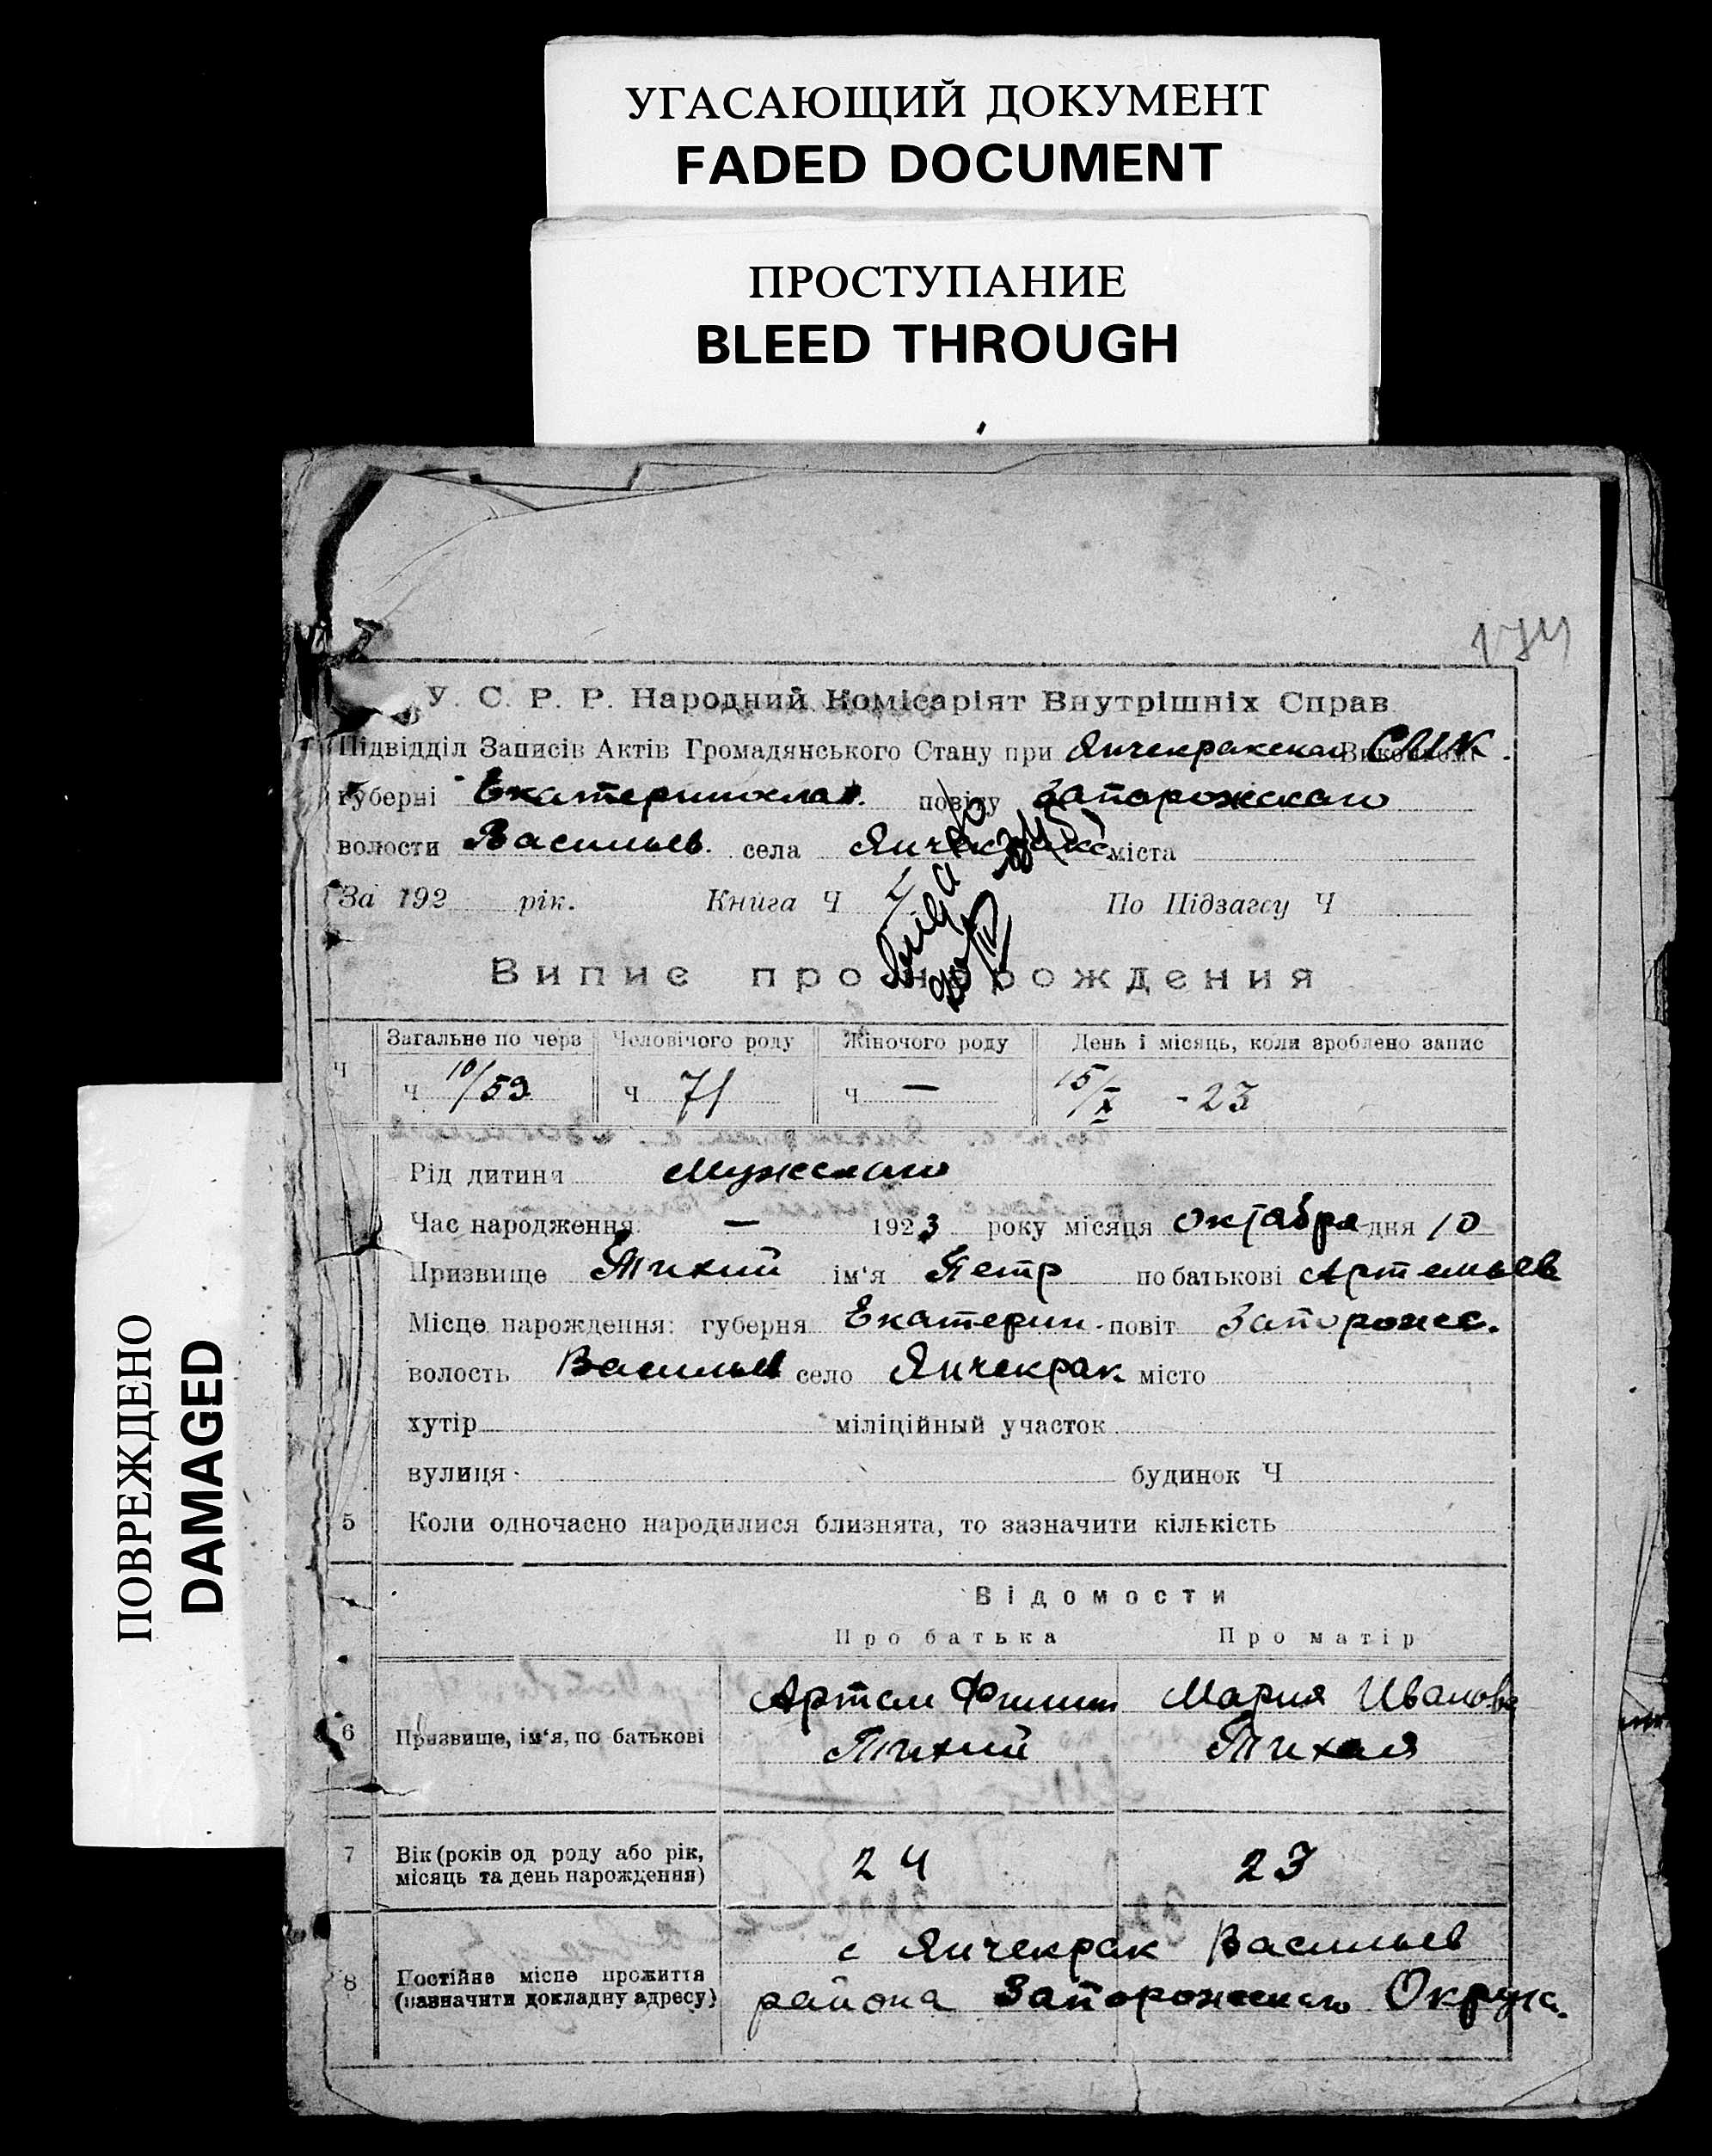 УГАСАЮЩИЙ ДОКУМЕНТ
FADED DOCUMENT
ПРОСТУПАНИЕ
BLEED THROUGH
ПОВРЕЖДЕНО
DAMAGED
У. С. Р. Р. Народний Комісаріят Внутрішніх Справ
Підвідділ Записів Актів Громадянського Стану при Янчекракском
губерні Екатеринослав. повіту Запорожского
волости Васильев. села Янчекрак міста
За 192 рік. Книга Ч По Підзагсу Ч
Випис про народження
Ч Загальне по черз Человічого роду Жіночого роду День і місяць, коли зроблено запис
ч 10/59 ч 71 ч — 15/X -23
Рід дитини мужскаго
Час народження — 1923 року місяця октабра дня 10
Призвище Тихий ім'я Петр по батькові Артемьев
Місце нарождення: губерня Екатерин. повіт Запорожс.
волость Васильев село Янчекрак місто
хутір міліційный участок
вулиця будинок Ч
5 Коли одночасно народилися близнята, то зазначити кількість
Відомости
Про батька Про матір
Артем Филип Мария Иванова
6 Призвище, ім'я, по батькові Тихий Тихая
7 Вік (років од роду або рік, місяць та день нарождення) 24 23
с Янчекрак Васильев
8 Постійне місце прожиття
(назначити докладну адресу) района Запорожскаго Округа.